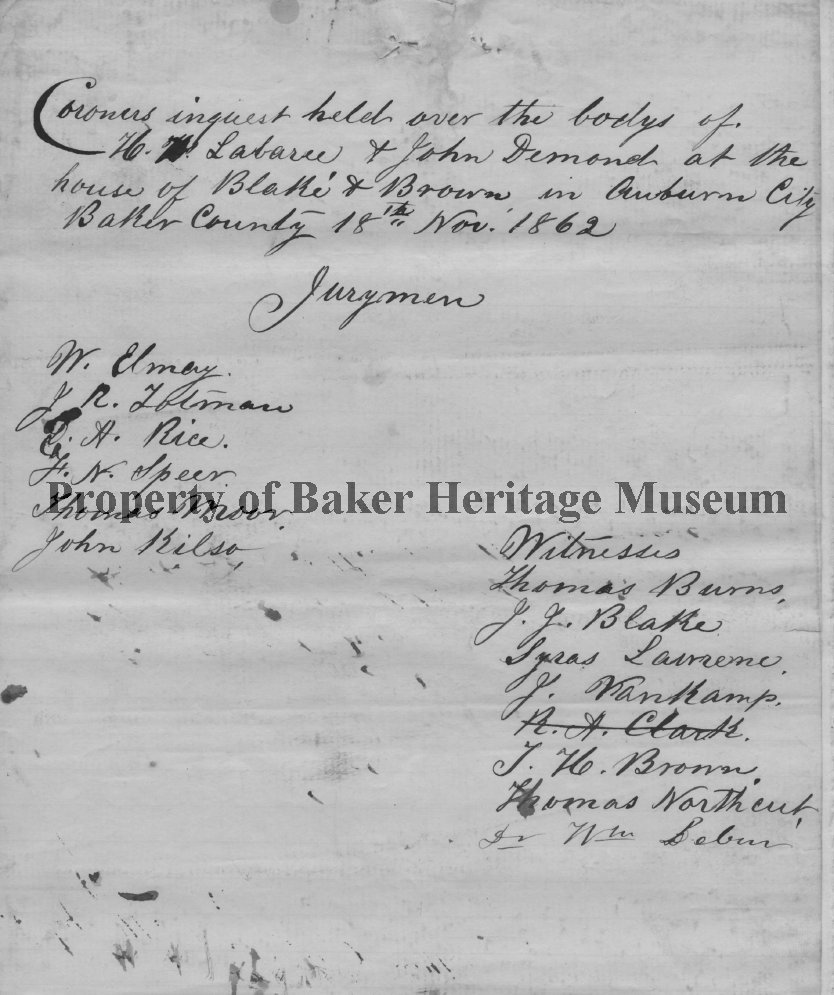 Coroners inquest held over the bodys of
H. Labaree & John Demond at the
house of Blake & Brown in Auburn City
Baker County 18th Nov. 1862
Jurymen
W. Elmay.
J. R. Totman
A. Rice.
F. N. Speer
Property of Baker Heritage Museum
Thomas
John Kilso
Witnesses
Thomas Burns,
J. J. Blake
Syras
J. Vankamp.
R. A. Clark.
T. H. Brown,
Thomas Northcut,
Dr Wm